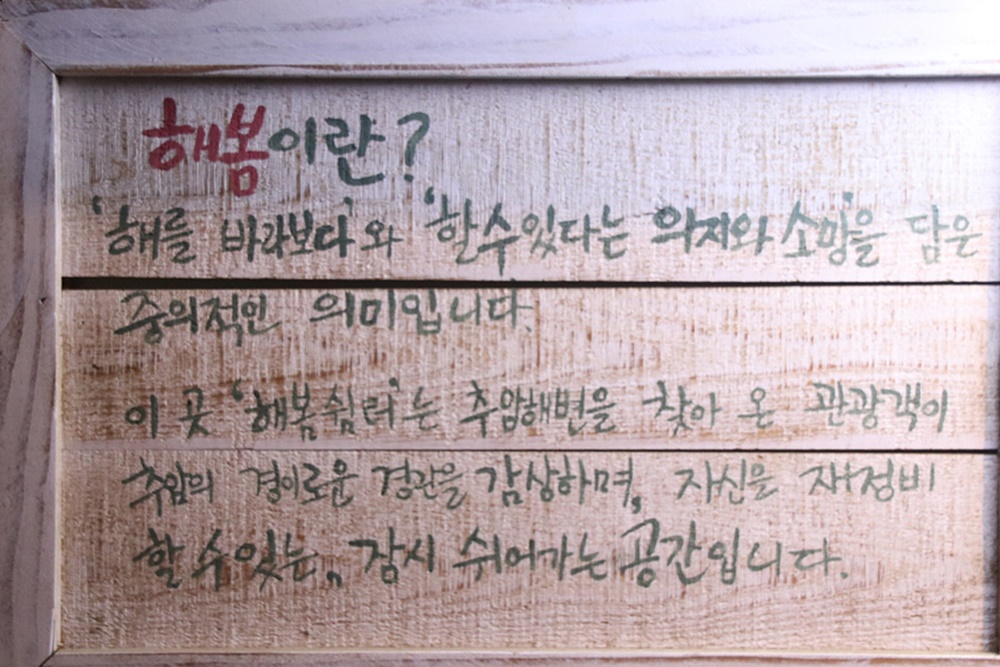 해봄이란?
'해를 바라보다'와 '할 수 있다는 의지와 소망'을 담은
중의적인 의미입니다.
이 곳 '해봄쉼터'는 추암해변을 찾아 온 관광객이
추암의 경이로운 경관을 감상하며, 자신을 재정비
할 수 있는,, 잠시 쉬어가는 공간입니다.